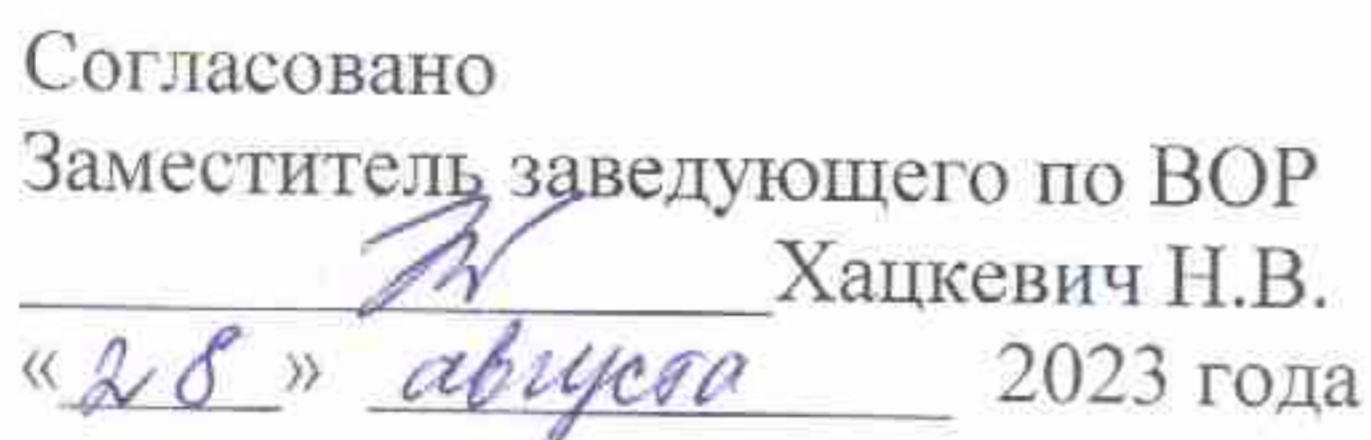 Согласовано
Заместитель заведующего по ВОР
Хацкевич Н.В.
«28» августа 2023 года